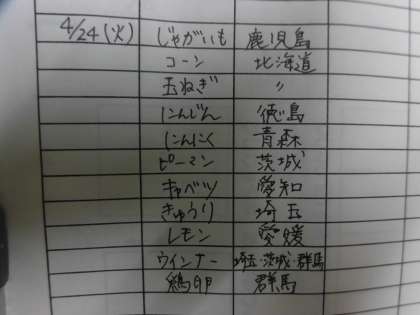 4/24(火) じゃがいも 鹿児島
コーン 北海道
玉ねぎ 〃
にんじん 徳島
にんにく 青森
ピーマン 茨城
キャベツ 愛知
きゅうり 埼玉
レモン 愛媛
ウインナー 埼玉・茨城・群馬
鶏卵 群馬